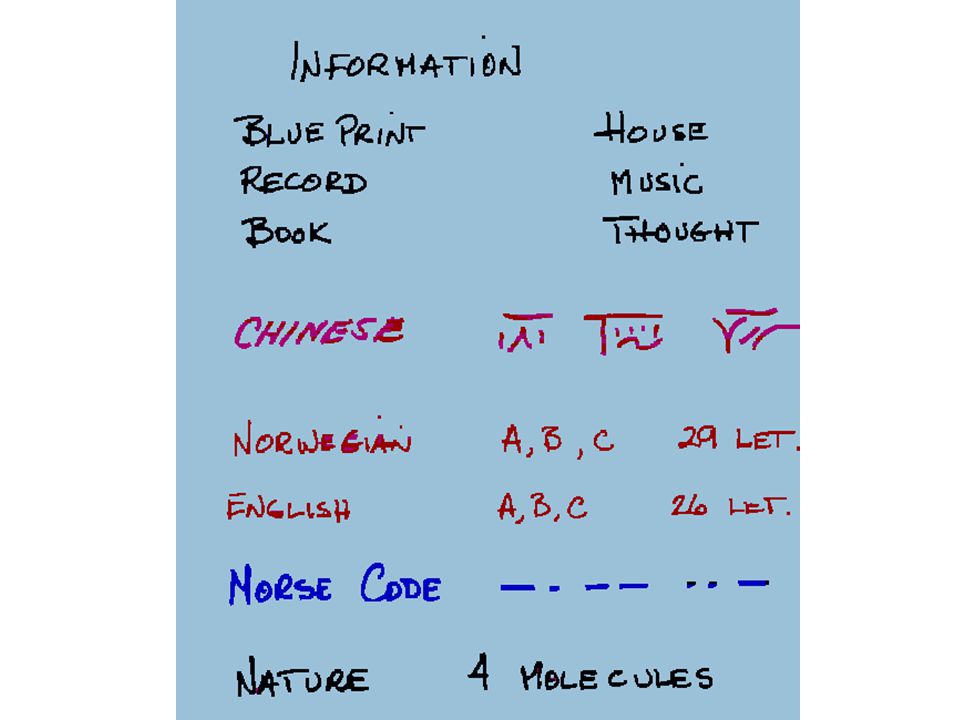 INFORMATION
BLUE PRINT HOUSE
RECORD MUSIC
BOOK THOUGHT
CHINESE
NORWEGIAN A, B, C 29 LET.
ENGLISH A, B, C 26 LET.
MORSE CODE — · — — · · —
NATURE 4 MOLECULES